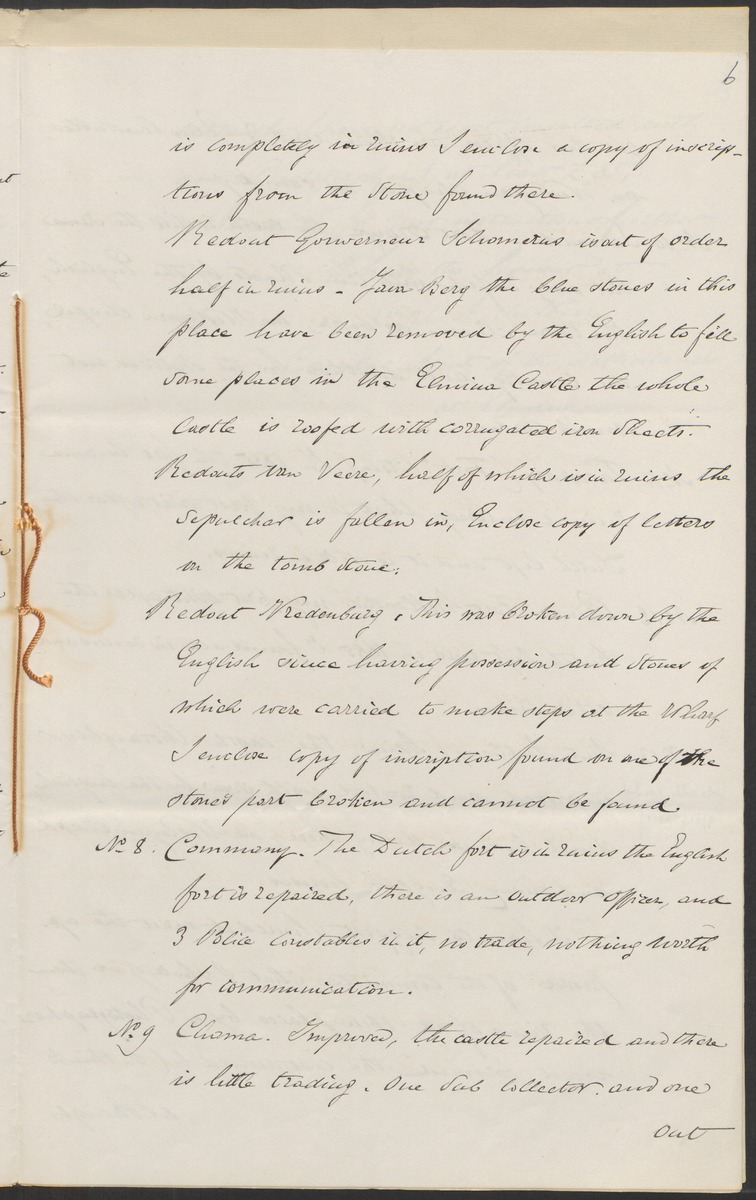 6
is completely in ruins I enclose a copy of inscrip-
tions from the Stone found there.
Redout Gouverneur Schomerus is out of order
half in ruins - Java Berg the blue stones in this
place have been removed by the English to fill
some places in the Elmina Castle the whole
Castle is roofed with corrugated iron Sheets.
Redouts van Veere, half of which is in ruins the
Sepulchar is fallen in, Enclose copy of letters
on the tomb stone.
Redout Vredenburg. This was broken down by the
English since having possession and Stones of
which were carried to make steps at the Wharf
I enclose copy of inscription found on one of the
stones part broken and cannot be found.
No 8. Commany. The Dutch fort is in ruins the English
fort is repaired, there is an outdoor Officer, and
3 Police Constables in it, no trade, nothing worth
for communication.
No 9 Chama. Improved, the castle repaired and there
is little trading. One Sub Collector. and one
Out